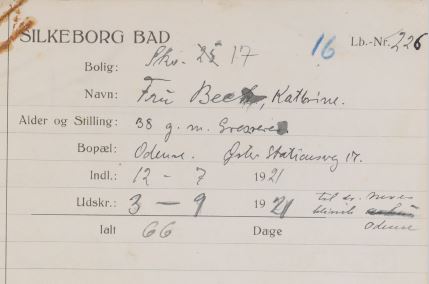 SILKEBORG BAD
16
Lb.-Nr. 226
Bolig: Skv. 25 17
Navn: Fru Beck, Kathrine.
Alder og Stilling: 38 g. m.
Bopæl: Odense. Øster Stationsvej 17.
Indl.: 12 - 7 1921
Udskr.: 3 - 9 1921 til dr.
klinik
Odense
Ialt 66 Dage